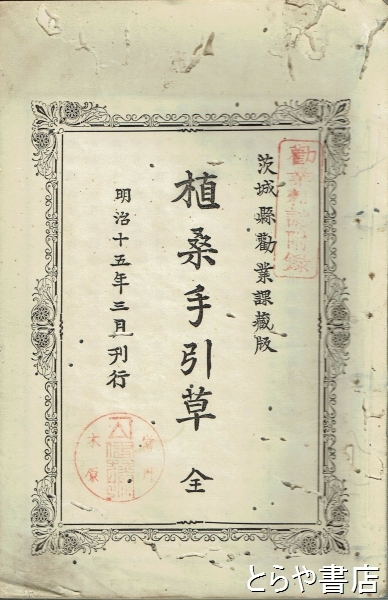 茨城縣勸業課藏版
植桑手引草 全
明治十五年三月刊行
とらや書店